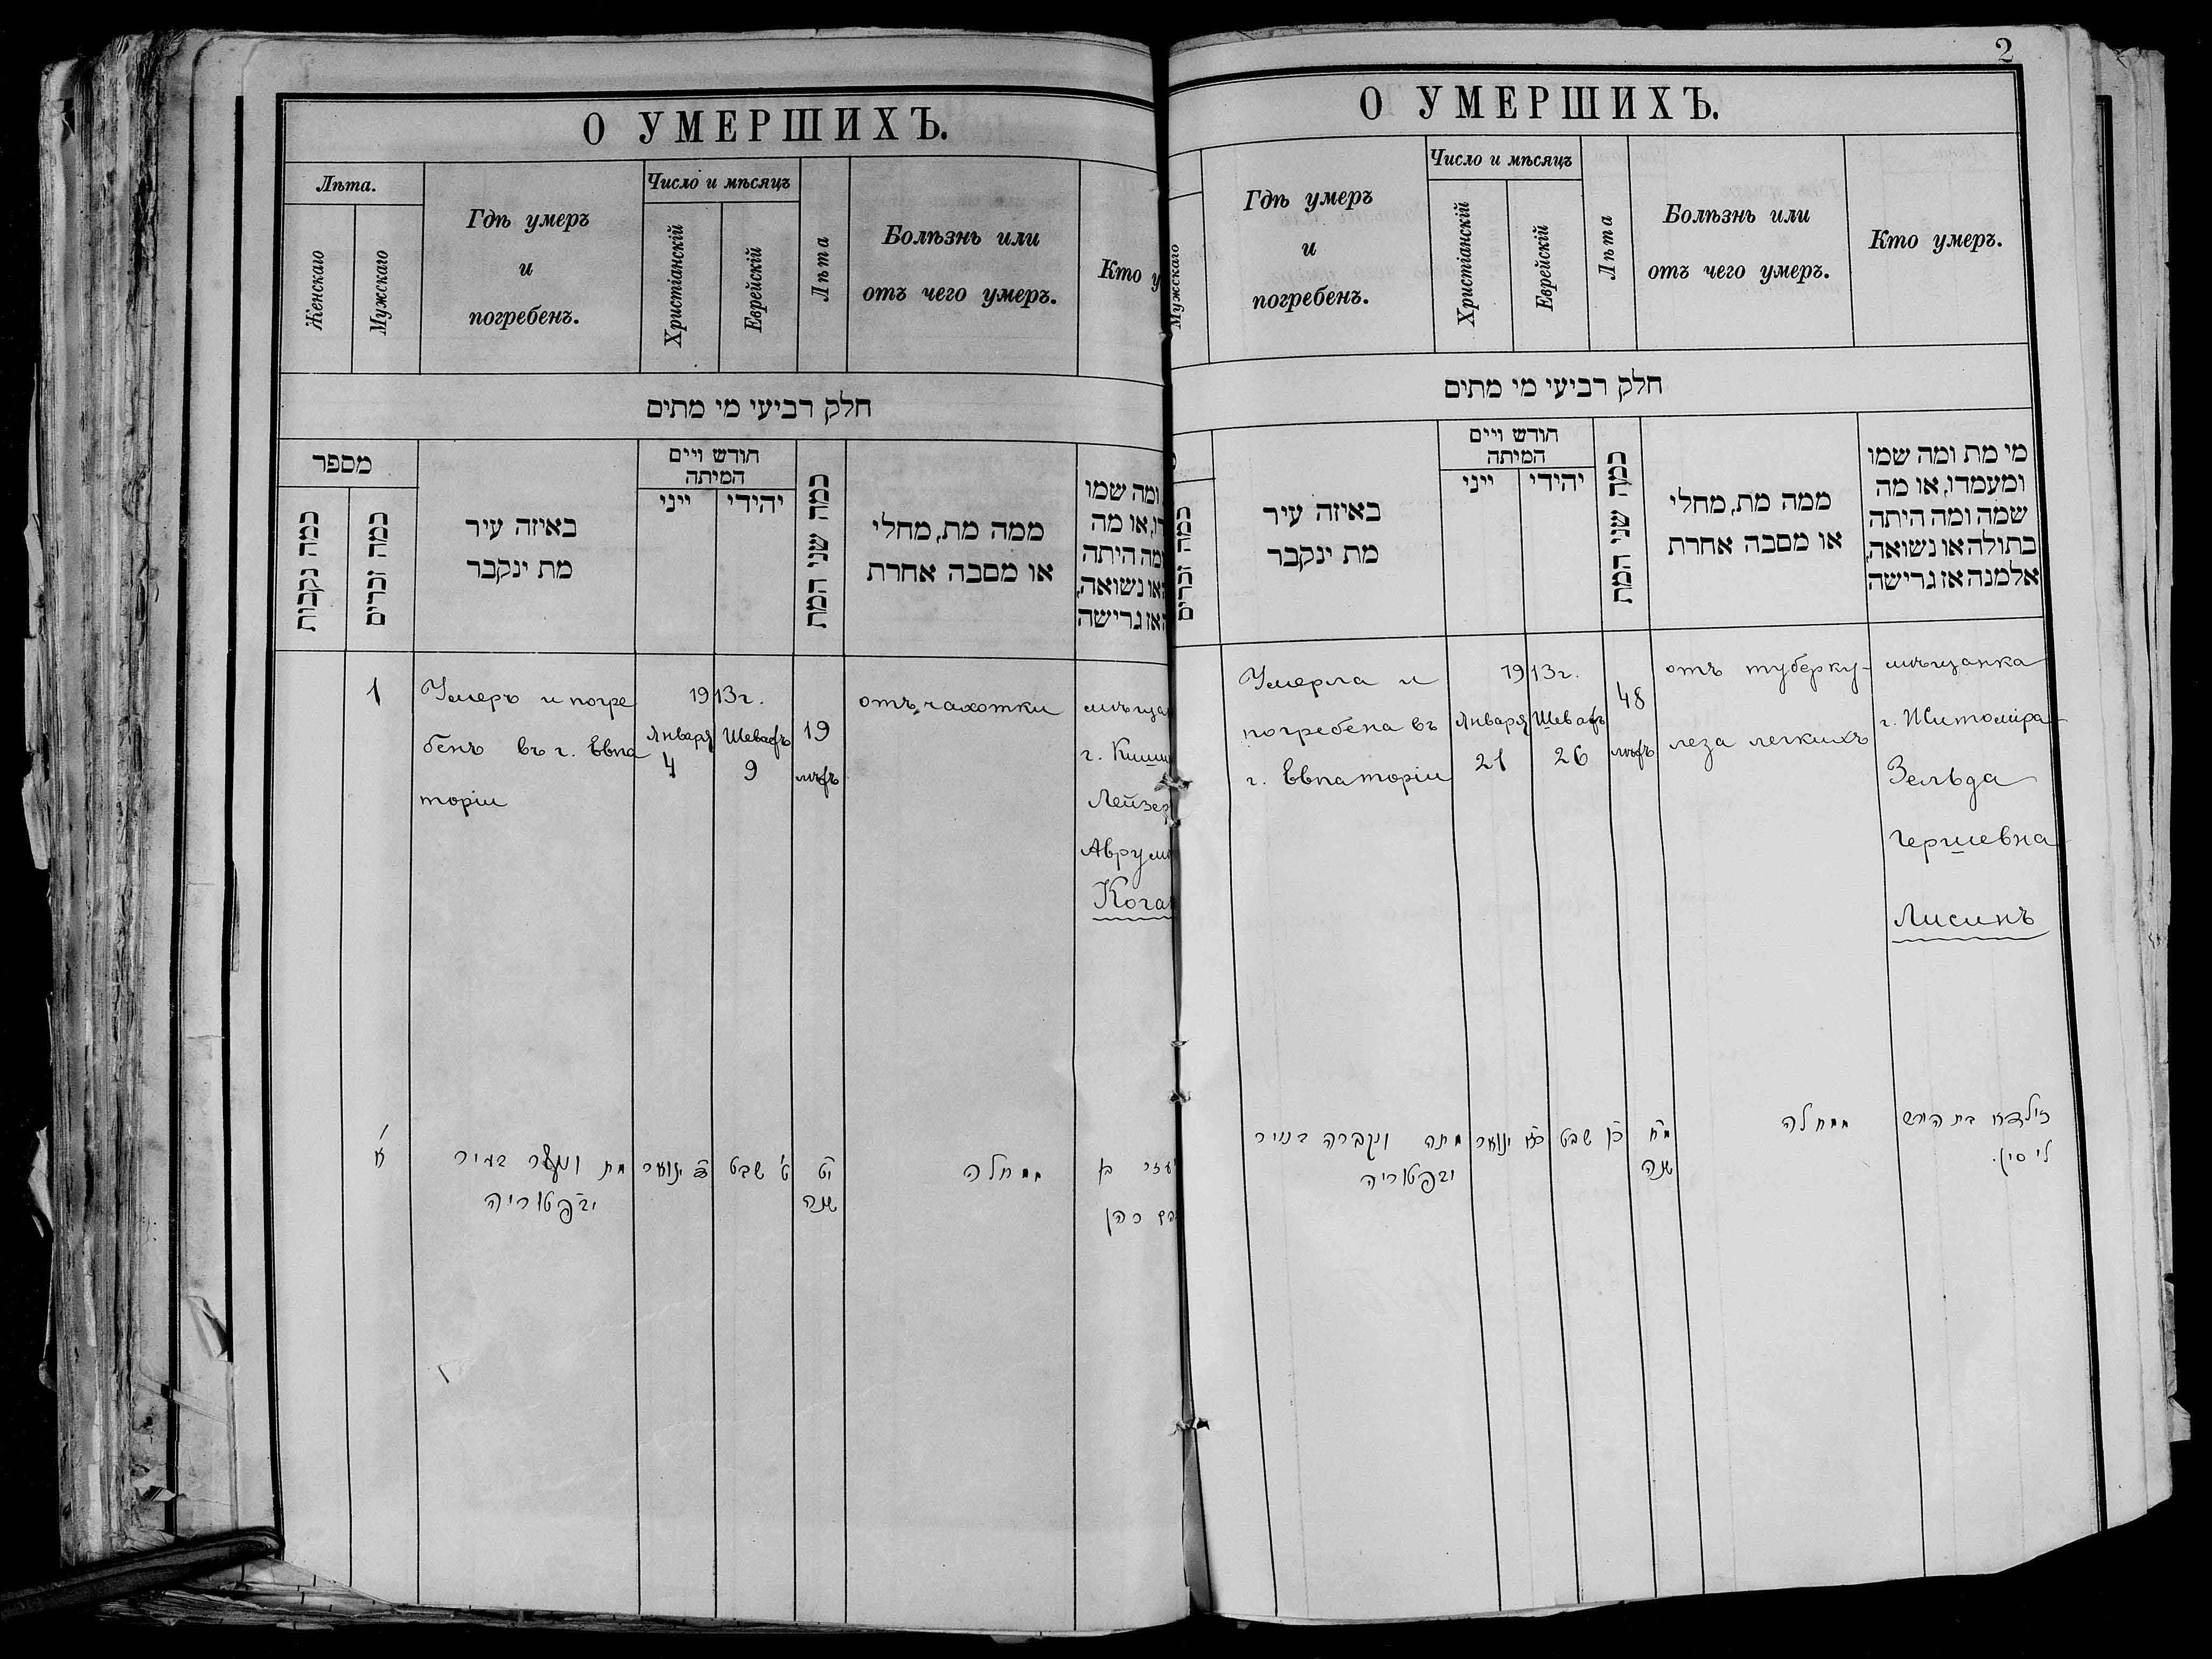 О УМЕРШИХЪ.
Лѣта.
Женскаго
Мужскаго
Гдѣ умеръ
и
погребенъ.
Число и мѣсяцъ
Христіанскій
Еврейскій
Лѣта
Болѣзнь или
отъ чего умеръ.
Кто у
חלק רביעי מי מתים
מספר
כמה נקבות
כמה זכרים
באיזה עיר
מת ינקבר
חודש ויים
המיתה
ייני
יהידי
כמה שני המת
ממה מת, מחלי
או מסבה אחרת
ומה שמו
דו, או מה
ומה היתה
או נשואה,
האז גרישה
1
Умеръ и погре
бенъ въ г. Евпа
торіи
1913г.
Января
4
Шеватъ
9
19
лѣтъ
отъ чахотки
мѣщан
г. Киши
Лейзер
Аврумо
Коган
א
מת ונקבר בעיר
יבפטוריה
ד׳ ינואר
ט׳ שבט
י״ט
שנה
ממחלה
עזר בן
כהן
2
О УМЕРШИХЪ.
Мужскаго
Гдѣ умеръ
и
погребенъ.
Число и мѣсяцъ
Христіанскій
Еврейскій
Лѣта
Болѣзнь или
отъ чего умеръ.
Кто умеръ.
חלק רביעי מי מתים
כמה זכרים
באיזה עיר
מת ינקבר
חודש ויים
המיתה
ייני
יהידי
כמה שני המת
ממה מת, מחלי
או מסבה אחרת
מי מת ומה שמו
ומעמדו, או מה
שמה ומה היתה
בתולה או נשואה,
אלמנה אז גרישה
Умерла и
погребена въ
г. Евпаторіи
1913г.
Января
21
Шеватъ
26
48
лѣтъ
отъ туберку-
леза легкихъ
мѣщанка
г. Житоміра
Зельда
Гершевна
Лисинъ
מתה ונקברה בעיר
יבפטוריה
כ״א ינואר
כ״ו שבט
מ״ח
שנה
ממחלה
זילדא בת הירש
ליסין.